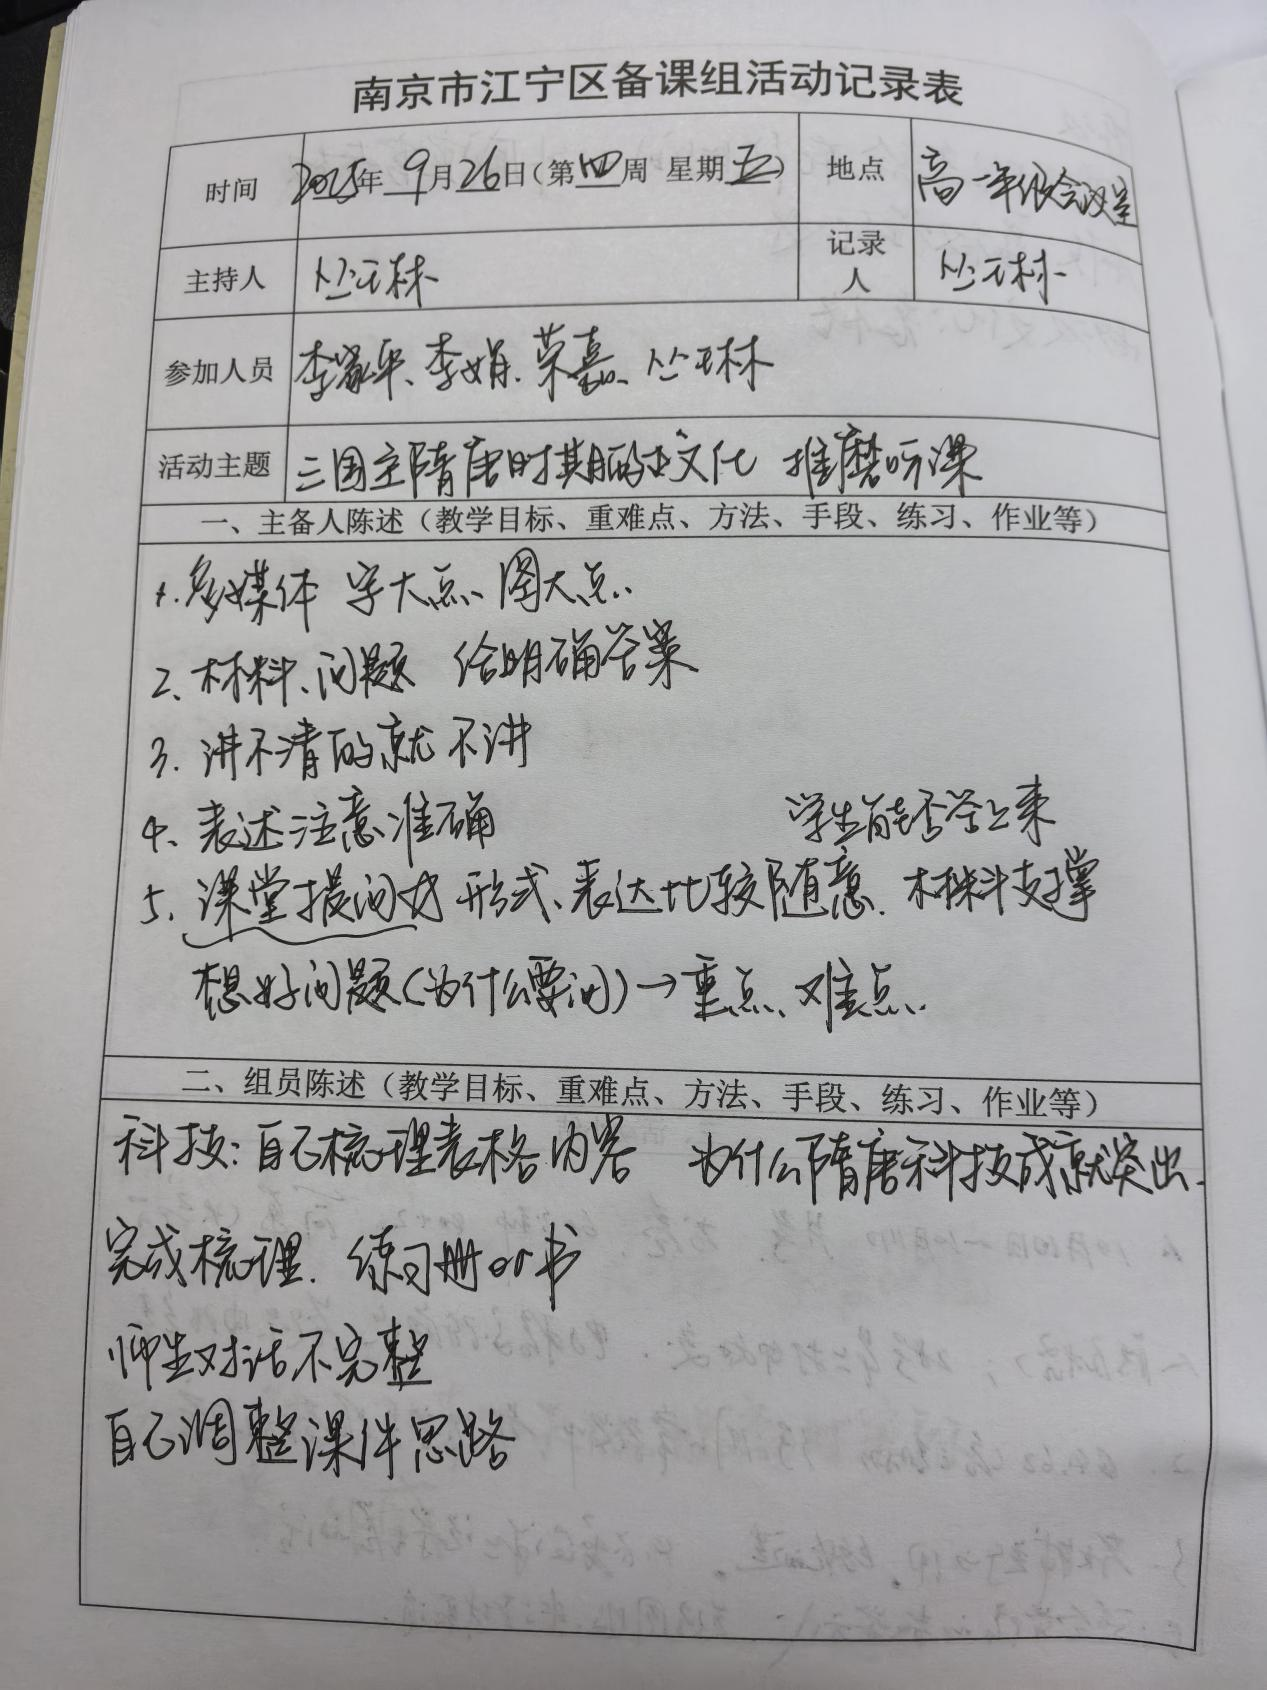 南京市江宁区备课组活动记录表
时间 2025年 9月26日(第四周 星期五) 地点 高一年级会议室
主持人 丛玉林 记录人 丛玉林
参加人员 李家平、李娟、荣嘉、丛玉林
活动主题 三国至隋唐时期的文化 推磨听课
一、主备人陈述（教学目标、重难点、方法、手段、练习、作业等）
1. 多媒体 字大点、图大点.
2、材料、问题 给明确答案
3. 讲不清的就不讲
4、表述注意准确 学生能否答上来
5、课堂提问 形式、表达比较随意. 材料支撑
想好问题(为什么要问)→重点、难点.
二、组员陈述（教学目标、重难点、方法、手段、练习、作业等）
科技: 自己梳理表格内容 为什么隋唐科技成就突出
完成梳理. 练习册or书
师生对话不完整
自己调整课件思路